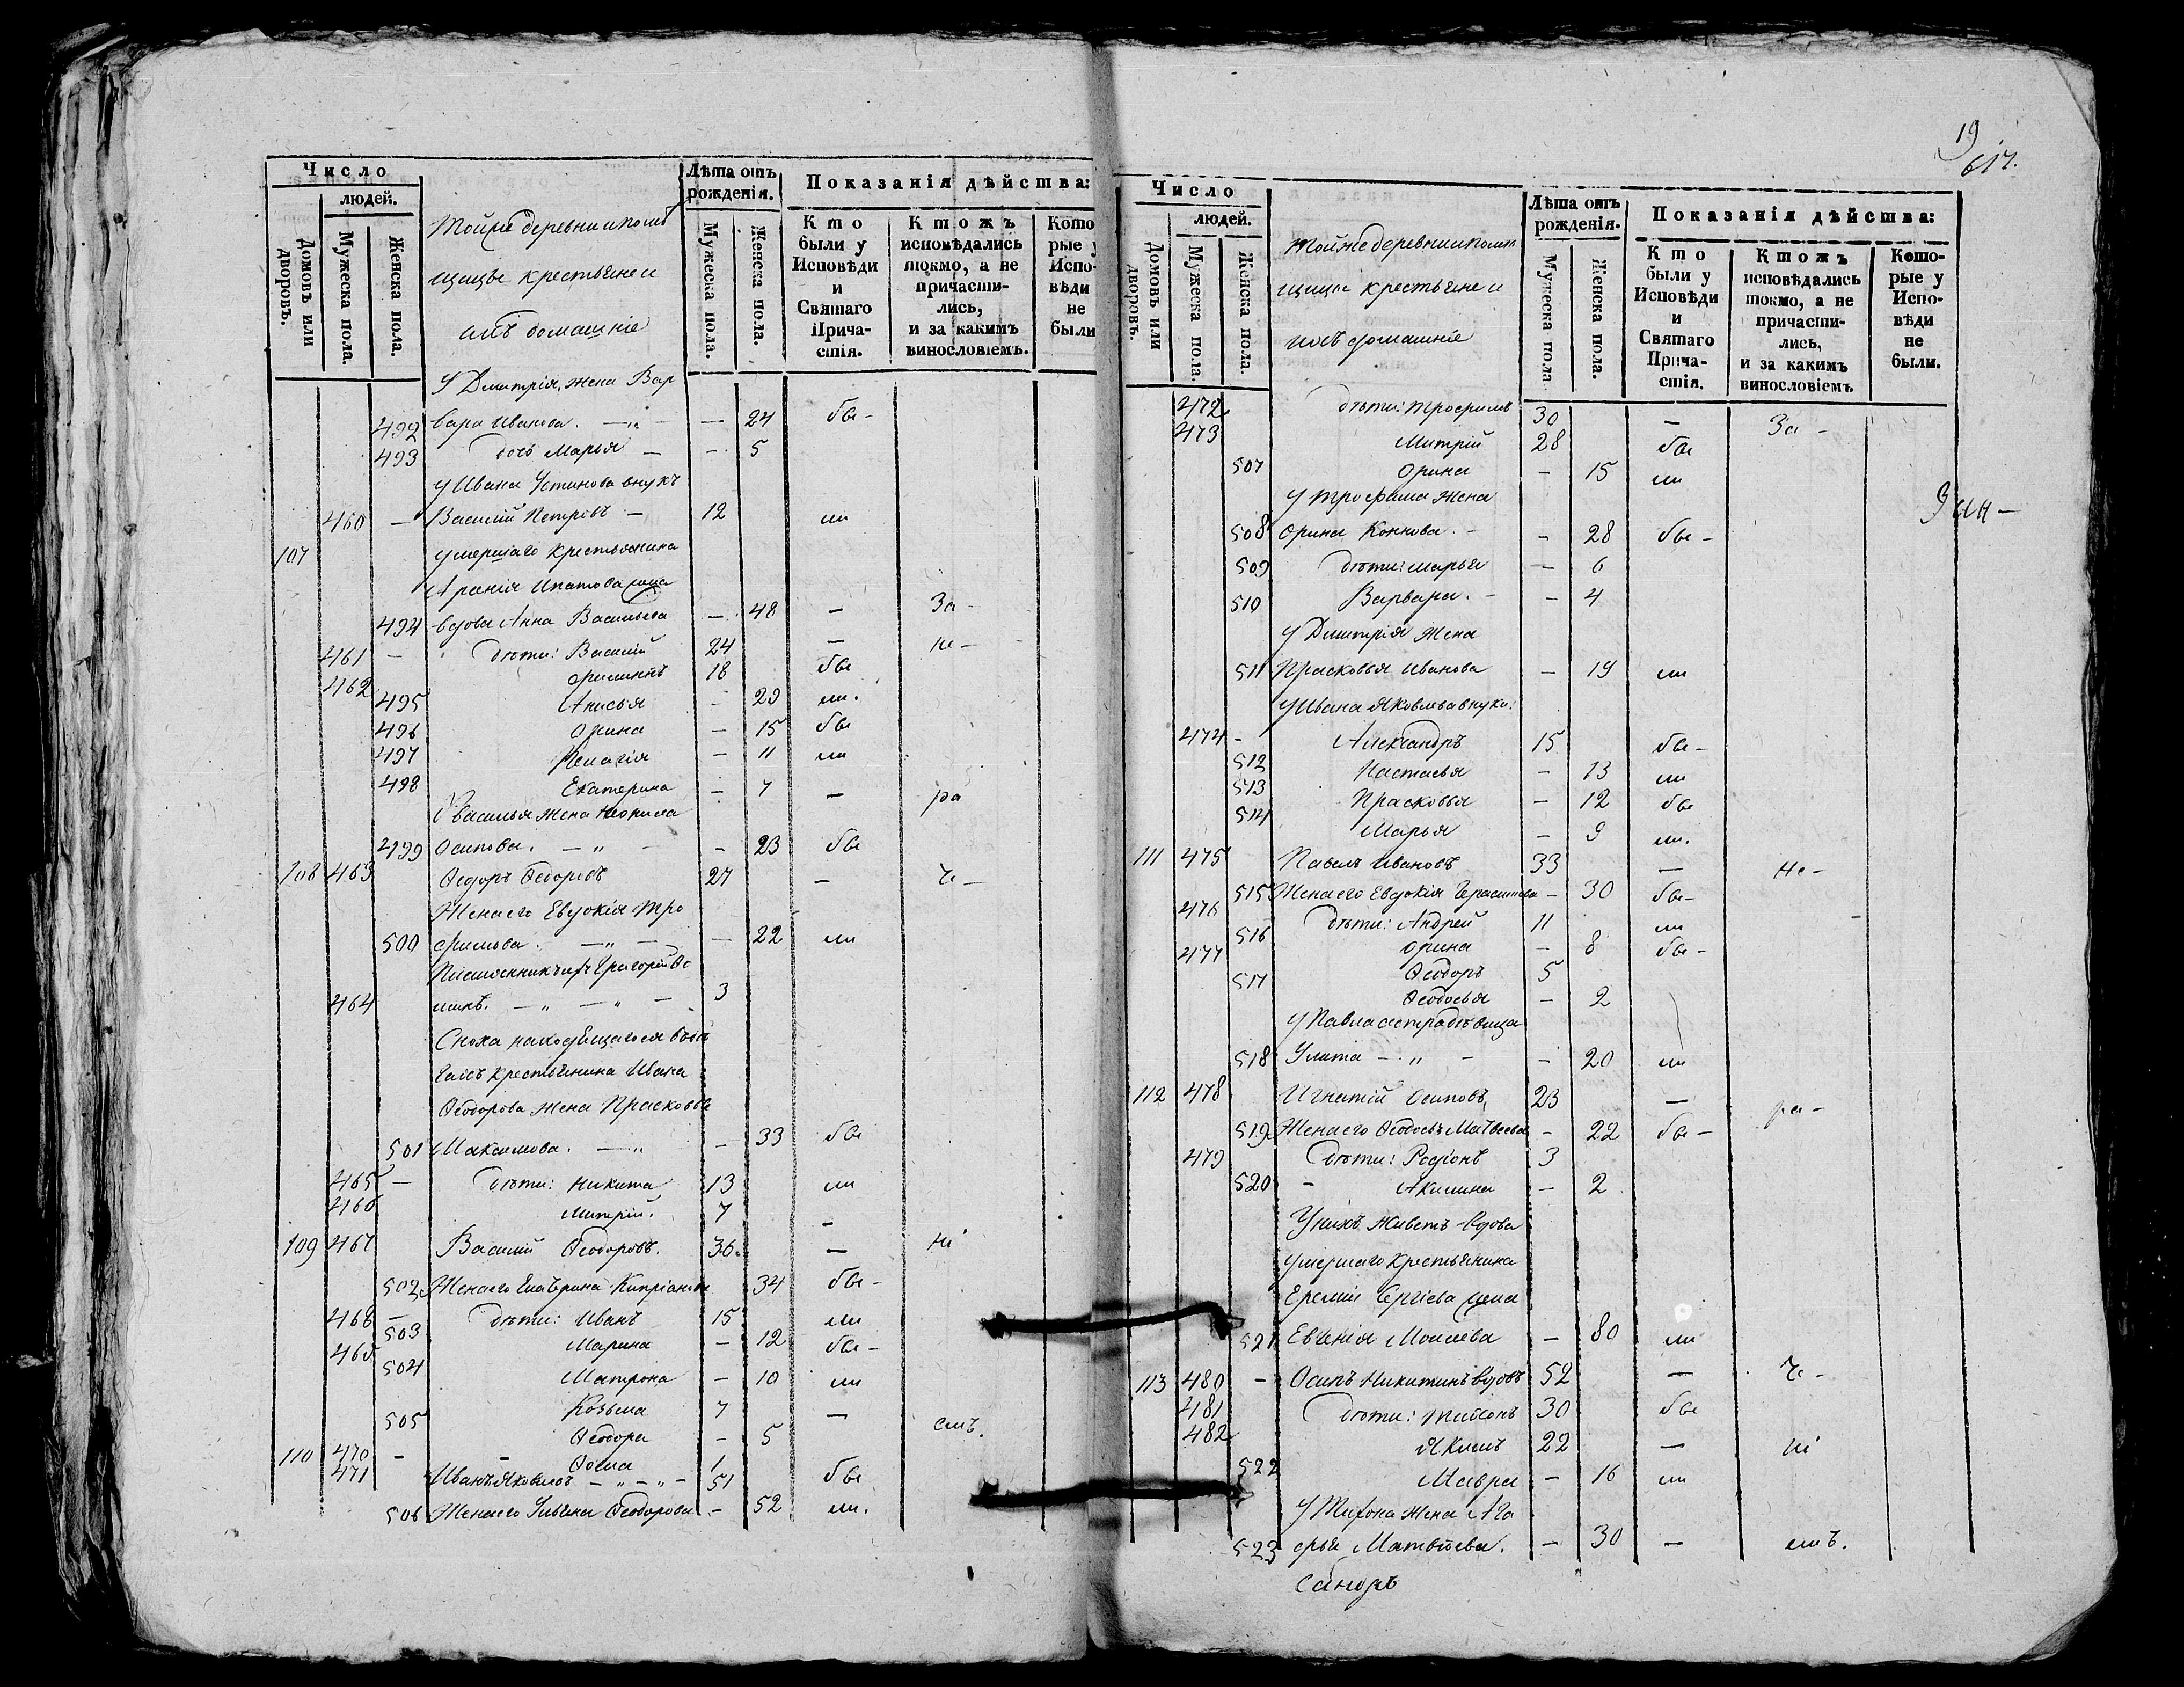 Число
людей.
Домовъ или дворовъ.
Мужеска пола.
Женска пола.
Тойже деревни и помѣ
щицы крестьяне и
ихъ домашніе
Лѣта отъ рожденія.
Мужеска пола.
Женска пола.
Показанія дѣйства:
Кто были у Исповѣди и Святаго Причастія.
Ктожъ исповѣдались токмо, а не причастились, и за какимъ винословіемъ.
Которые у Исповѣди не были
У Дмитрія жена Вар
492 вара Иванова. — „ — — 24 бы-
493 дочь Марья — — 5
у Ивана Устинова внукъ
460 — Василій Петровъ — 12 ли
107 умершаго крестьянина
Ипатова жена
494 вдова Анна Васильева — 48 — За-
461 — дѣти: Василій 24 — не-
462 18 бы
495 Анисья — 20 ли.
496 Орина — 15 бы
497 Пелагія — 11 ли
498 Екатерина — 7 — ра
У Василья жена Неонила
499 Осипова. — „ — — 23 бы
108 463 Ѳедоръ Ѳедоровъ 27 — че-
Жена его Евдокія Тро
500 фимова. — „ — — 22 ли
Племянникъ ихъ Григорій Ѳо
464 минъ. — „ — „ — 3
Сноха находящагося въ
крестьянина Ивана
Ѳеодорова жена Прасковья
501 Максимова. — „ — 33 бы
465 — дѣти: Никита 13 ли
466 Митрій. 7 —
109 467 Василій Ѳеодоровъ. 36. — ні
502 Жена его Екатерина Кипріанова 34 бы-
468 — дѣти: Иванъ 15 ли
503 Марина — 12 бы-
469 504 Матрона — 10 ли
Козьма 7 —
505 Ѳеодора — 5 емъ.
110 470 — — Ѳома 1
471 Иванъ Яковлевъ — „ — „ — 51 бы
506 Жена его Ульяна Ѳеодорова — 52 ли.
19
617.
Число
людей.
Домовъ или дворовъ.
Мужеска пола.
Женска пола.
Тойже деревни и помѣ
щицы крестьяне и
ихъ домашніе
Лѣта отъ рожденія.
Мужеска пола
Женска пола.
Показанія дѣйства:
Кто были у Исповѣди и Святаго Причастія.
Ктожъ исповѣдались токмо, а не причастились, и за какимъ винословіемъ
Которые у Исповѣди не были.
472 дѣти: Трофимъ 30 — За-
473 Митрій 28 бы
507 Орина — 15 ли
У Трофима жена
508 Орина Кононова. — — 28 бы-
509 дѣти: Марья — 6
510 Варвара. — — 4
У Дмитрія жена
511 Прасковья Иванова — 19 ли
У Ивана Яковлева внуки:
474 — Александръ 15 бы-
512 Настасья — 13 ли
513 Прасковья — 12 бы
514 Марья — 9 ли.
111 475 Павелъ Ивановъ 33 — не-
515 Жена его Евдокія Герасимова — 30 бы-
476 дѣти: Андрей 11 ли
516 Орина — 8 бы-
477 Ѳеодоръ 5
517 Ѳеодосья — 2
У Павла сестра дѣвица
518 Улита — „ — — 20 ли
112 478 Игнатій Осиповъ 23 — ра-
519 Жена его Ѳеодосья Матвеева — 22 бы-
479 дѣти: Родіонъ 3
520 — Акилина — 2
У нихъ живетъ вдова
умершаго крестьянина
Еремія Сергіева жена
521 Евгенія Моисеева — 80 ли
113 480 — Осипъ Никитинъ вдовъ 52 — че-
481 дѣти: Тихонъ 30 бы
482 Якимъ 22 — ні
522 Мавра — 16 ли
У Тихона жена Ага
523 фья Матвѣева. — 30 — емъ.